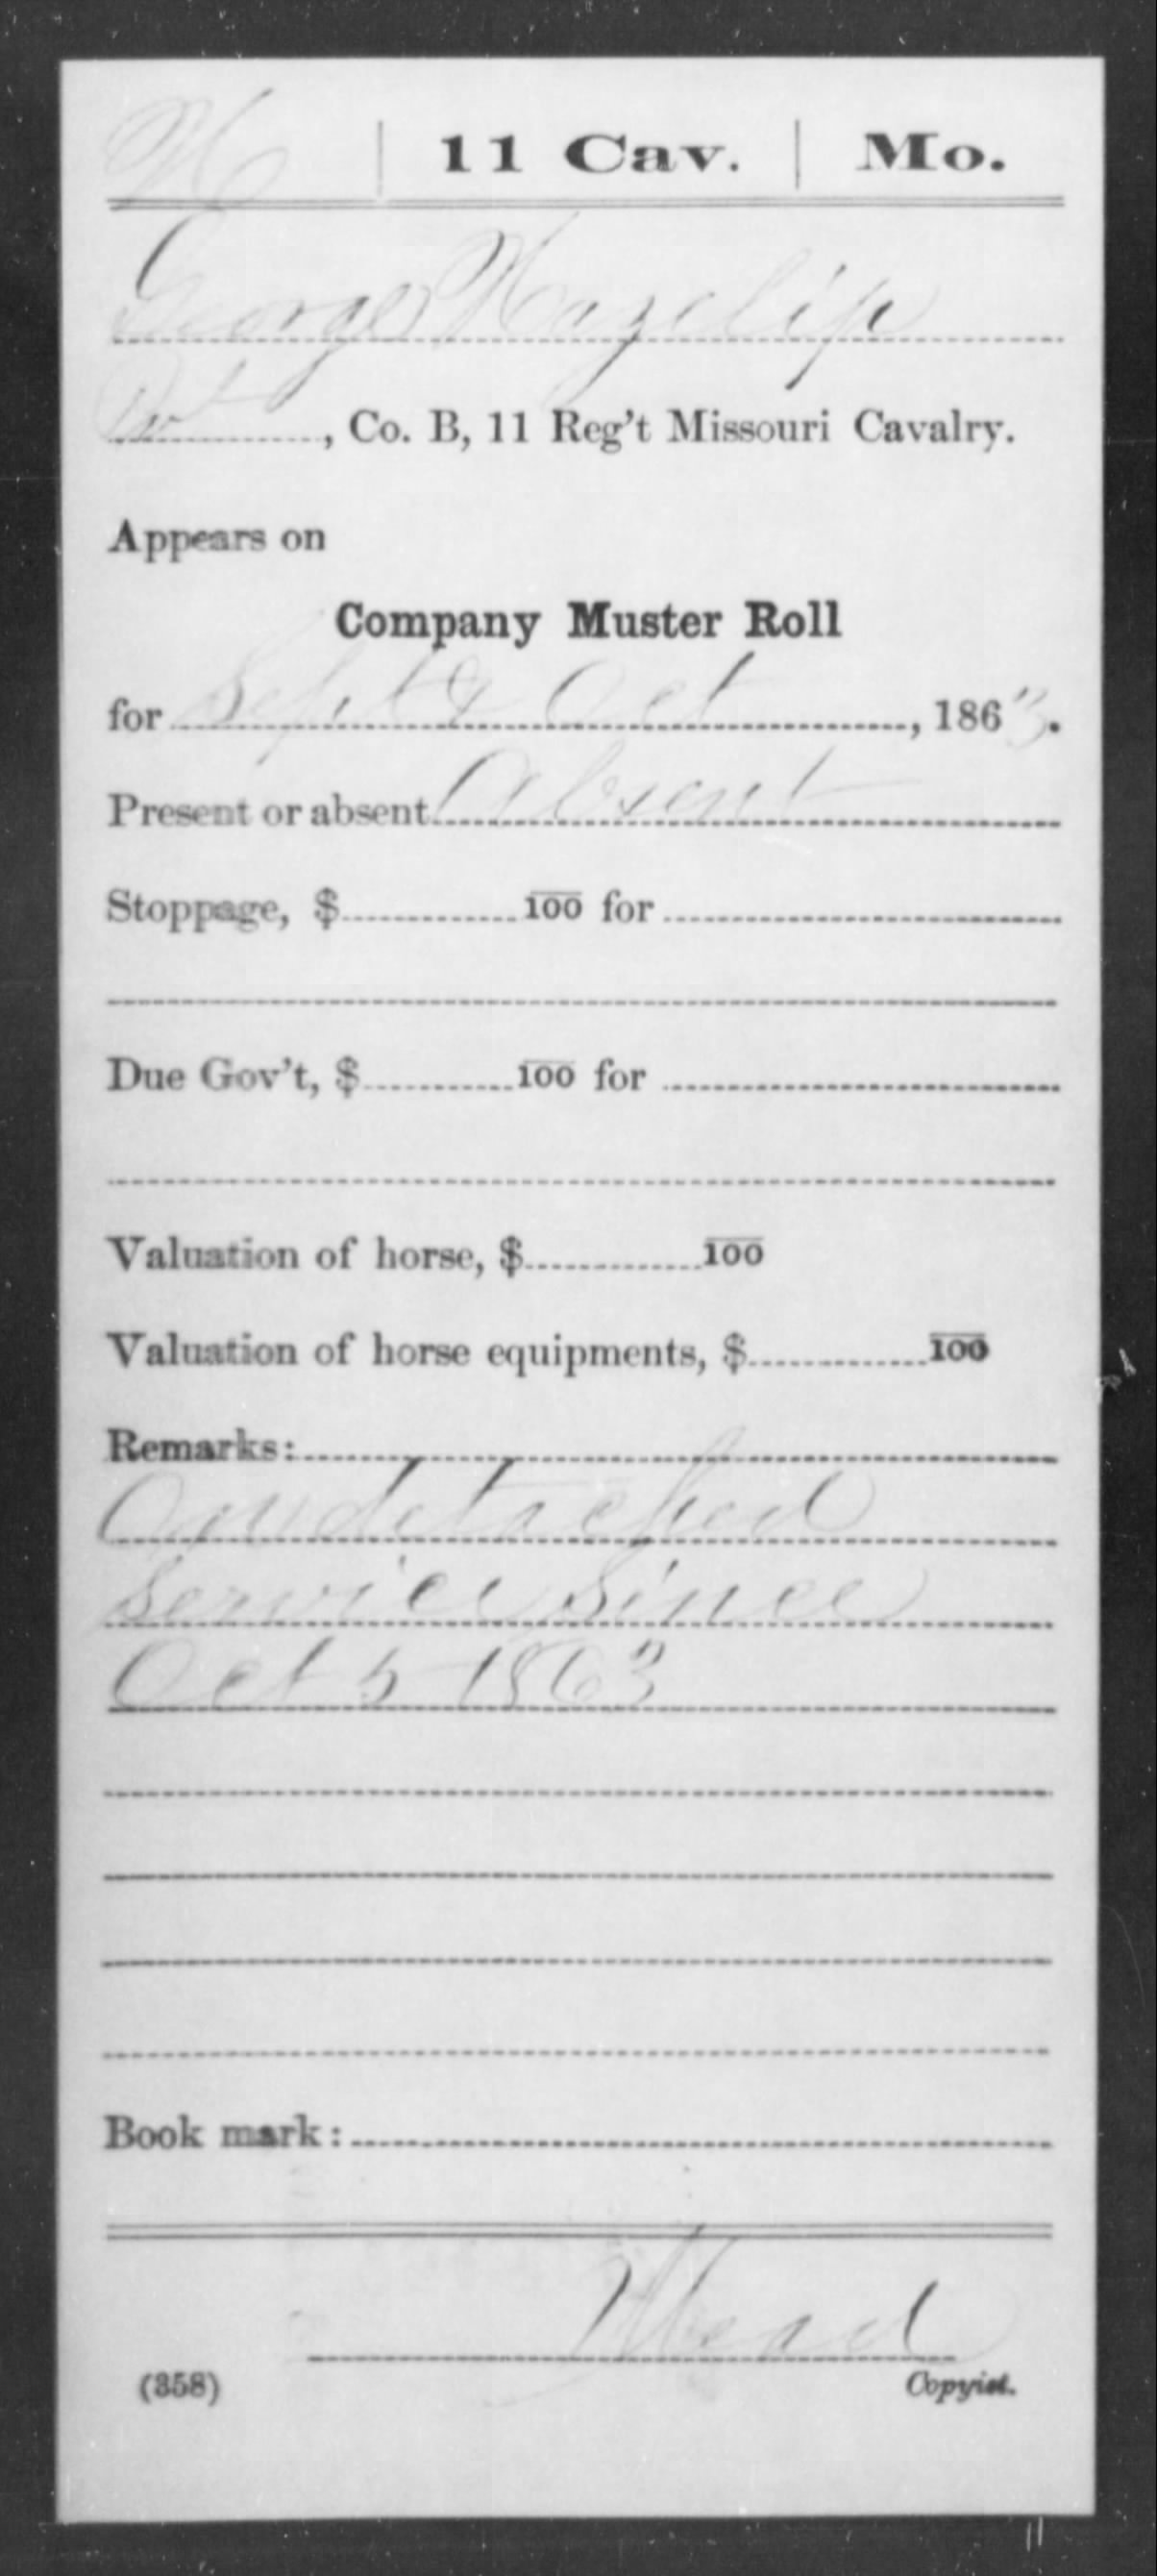 H | 11 Cav. | Mo.
George Hazelip
Pvt, Co. B, 11 Reg't Missouri Cavalry.
Appears on
Company Muster Roll
for Sept & Oct, 1863.
Present or absent Absent
Stoppage, $ 100 for
Due Gov't, $ 100 for
Valuation of horse, $ 100
Valuation of horse equipments, $ 100
Remarks:
On detached
Service Since
Oct 5 1863
Book mark:
Mead
(358) Copyist.